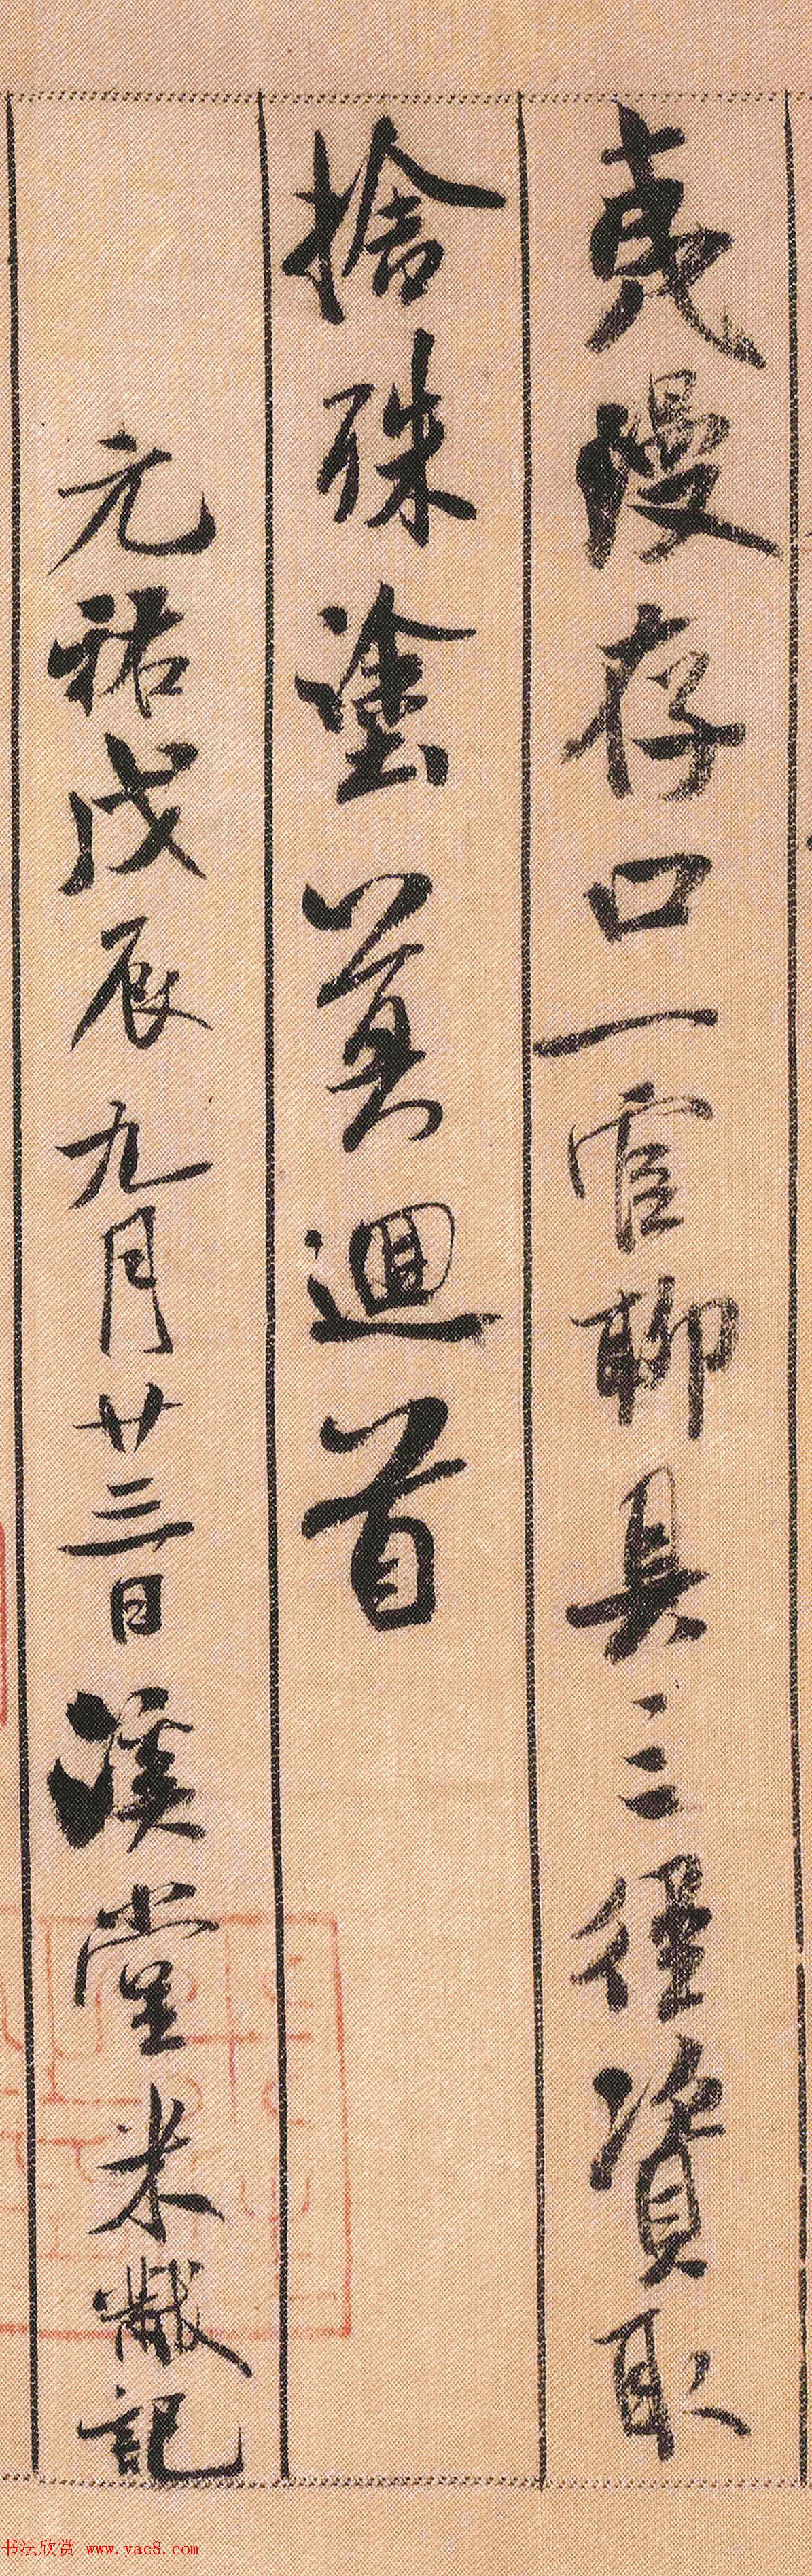 夷漫存口一官聊具三徑資取
捨殊塗莫迴首
元祐戊辰九月廿三日溪堂米黻記
书法欣赏 www.yac8.com